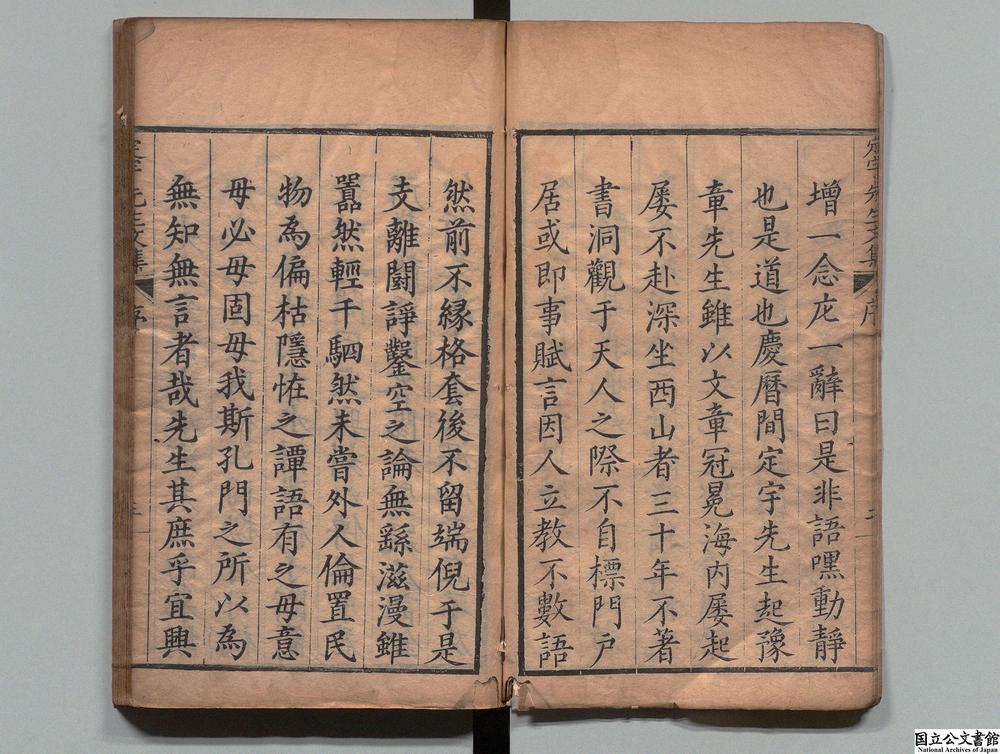 増一念庀一辭曰是非語嘿動靜
也是道也慶曆間定宇先生起豫
章先生雖以文章冠冕海内屡起
屡不赴深坐西山者三十年不著
書洞觀于天人之際不自標門戶
居或即事賦言因人立教不數語
然前不緣格套後不留端倪于是
支離鬪諍鑿空之論無繇滋漫雖
囂然輕千駟然未嘗外人倫置民
物為偏枯隱怪之譚語有之毋意
毋必毋固毋我斯孔門之所以為
無知無言者哉先生其庶乎宜興
定宇先生文集
序
先生文集
序
国立公文書館
National Archives of Japan